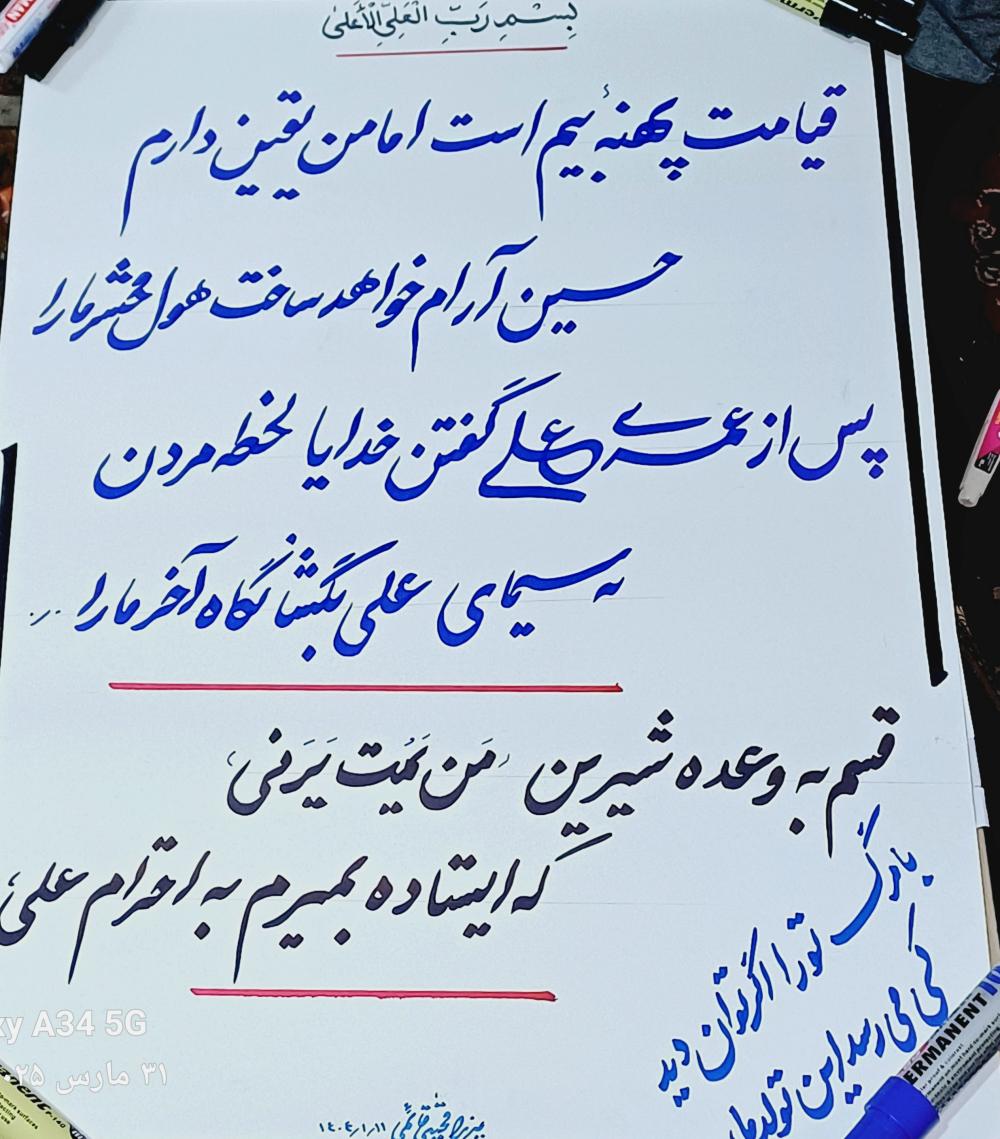 بِسْمِ رَبِّ الْعَلِيِّ الْأَعْلىٰ
قیامت پهنهٔ بیم است اما من یقین دارم
حسین آرام خواهد ساخت هول محشر ما را
پس از عمری علی گفتن خدایا لحظه مردن
به سیمای علی بگشا نگاه آخر ما را ..
قسم به وعده شیرین «مَن یَمُت یَرَنی»
که ایستاده بمیرم به احترام علی
با مرگ تو را اگر توان دید
کی می رسد این تولد ما
۱۴۰۴/۱/۱۱
xy A34 5G
۳۱ مارس ۲۵
ERMANENT